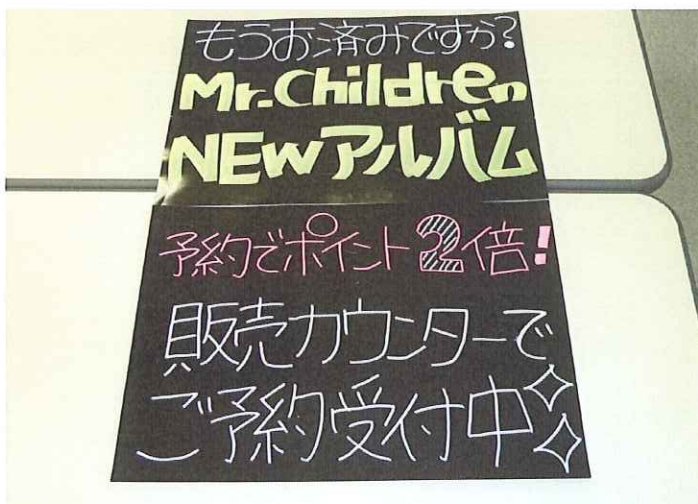 もうお済みですか?
Mr.Children
NEWアルバム
予約でポイント2倍!
販売カウンターで
ご予約受付中